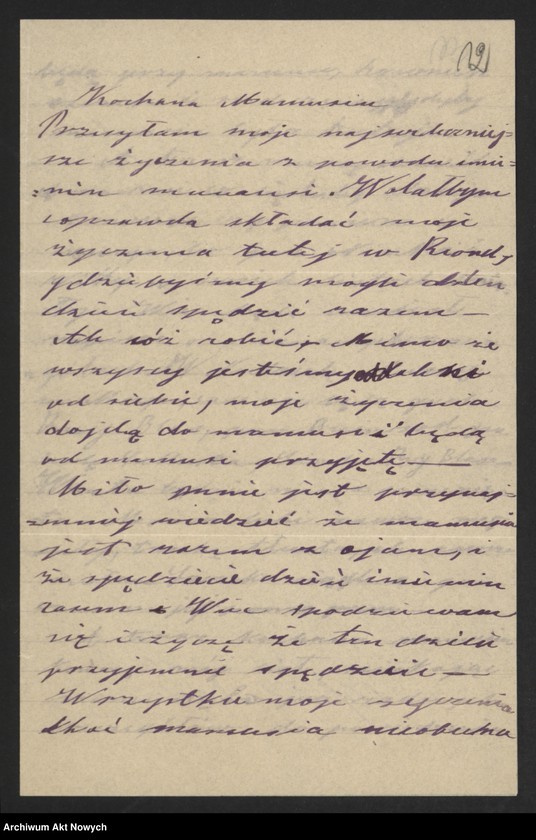 12
Kochana Mamusiu
Przesyłam moje najserdeczniej-
sze życzenia z powodu imie-
-nin mamusi. Wolałbym
coprawda składać moje
życzenia tutej w Riond,
gdziebyśmy mogli dzien
dzień spędzić razem —
Ale cóż robić, Mimo że
wszyscy jesteśmy daleki
od siebie, moje życzenia
dojdą do mamusi i będą
od mamusi przyjętę —
Miło mnie jest przynaj-
-mniej wiedzieć że mamusia
jest razem z ojcem, i
że spędziecie dzień imienin
razem. Więc spodziewam
się i życzę że ten dzień
przyjemnie spędzicie —
Wszystkie moje życzenia
choć mamusia nieobecna
Archiwum Akt Nowych